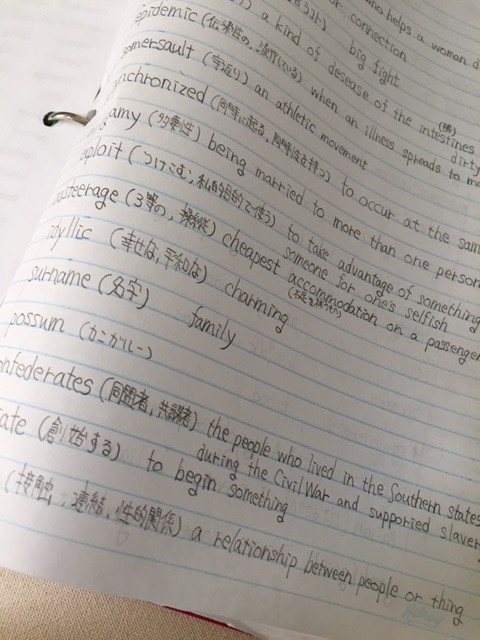 who helps a woman d
or connection
) a kind of desease of the intestines
big fight
epidemic (伝染性の, 流行している) when an illness spreads to ma
dirty
somersault (宙返り) an athletic movement
nchronized (同時に起る, 同時性を持つ) to occur at the sam
gamy (多妻性) being married to more than one person
eploit (つけこむ, 私的目的で使う) to take advantage of something
someone for one's selfish
usteerage (3等の, 操縦) cheapest accommodation on a passenger
idyllic (幸せな, 平和な) charming
surname (名字) family
possum (カンガルー)
onfederates (同盟者, 共謀者) the people who lived in the Southern states
during the Civil War and supported slaver
ate (創始する) to begin something
(接触, 連結, 性的関係) a relationship between people or thing